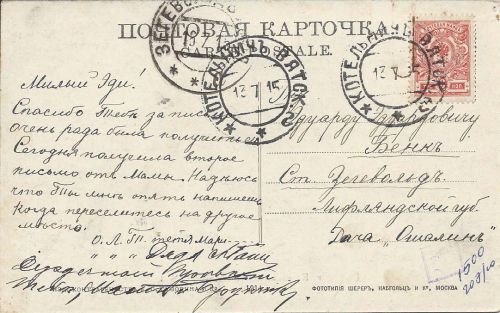 ПОЧТОВАЯ КАРТОЧКА.
CARTE POSTALE.
ЗЕГЕВОЛЬДЪ
КОТЕЛЬНИЧЪ ВЯТСК.
13 7 15
КОТЕЛЬНИЧЪ ВЯТСК.
13 7 15
Милый Эди!
Спасибо Тебѣ за письмо
очень рада была получить его
Сегодня получила второе
письмо отъ Мамы. Надѣюсь
что Ты мнѣ опять напишешь
когда переселитесь на другое
мѣсто.
О. Л. Т. тетя Мари
Эдуарду Эдуардовичу
Бенкъ
Ст. Зегевольдъ.
Лифляндской губ.
Дача „
1500
ФОТОТИПІЯ ШЕРЕРЪ, НАБГОЛЬЦЪ И Кº, МОСКВА